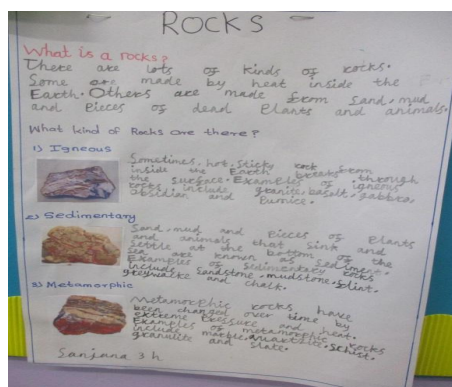 ROCKS
What is a rocks?
There are lots of kinds of rocks.
Some are made by heat inside the
Earth. Others are made from sand, mud
and pieces of dead plants and animals.
What kind of Rocks are there?
1) Igneous
Sometimes, hot, sticky rock from
inside the Earth breaks through
the surface. Examples of igneous
rocks include granite, basalt, gabbro,
obsidian and pumice.
2) Sedimentary
Sand, mud and pieces of plants
and animals that sink and
settle at the bottom of the
sea are known as sediment.
Examples of sedimentary rocks
include sandstone, mudstone, flint,
greywalke and chalk.
3) Metamorphic
Metamorphic rocks have
been changed over time by
extreme pressure and heat.
Examples of metamorphic rocks
include marble, quartzite, schist,
granulite and slate.
Sanjana 3 h